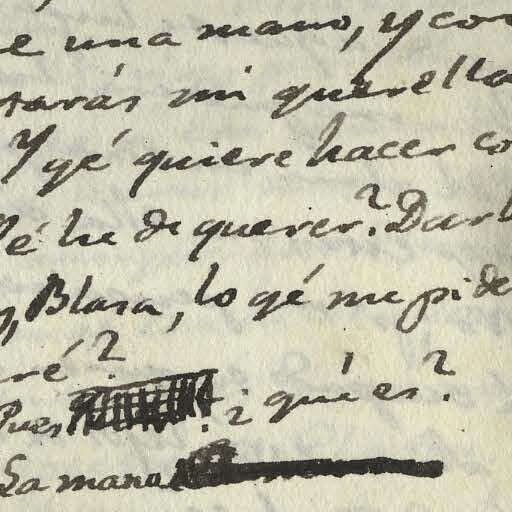 e una mano, y con
tarás mi querella
Y qé quiere hacer co
é he de querer? Darl
Blasa, lo qé me pide
ré?
Pues ¿qué es?
La mano